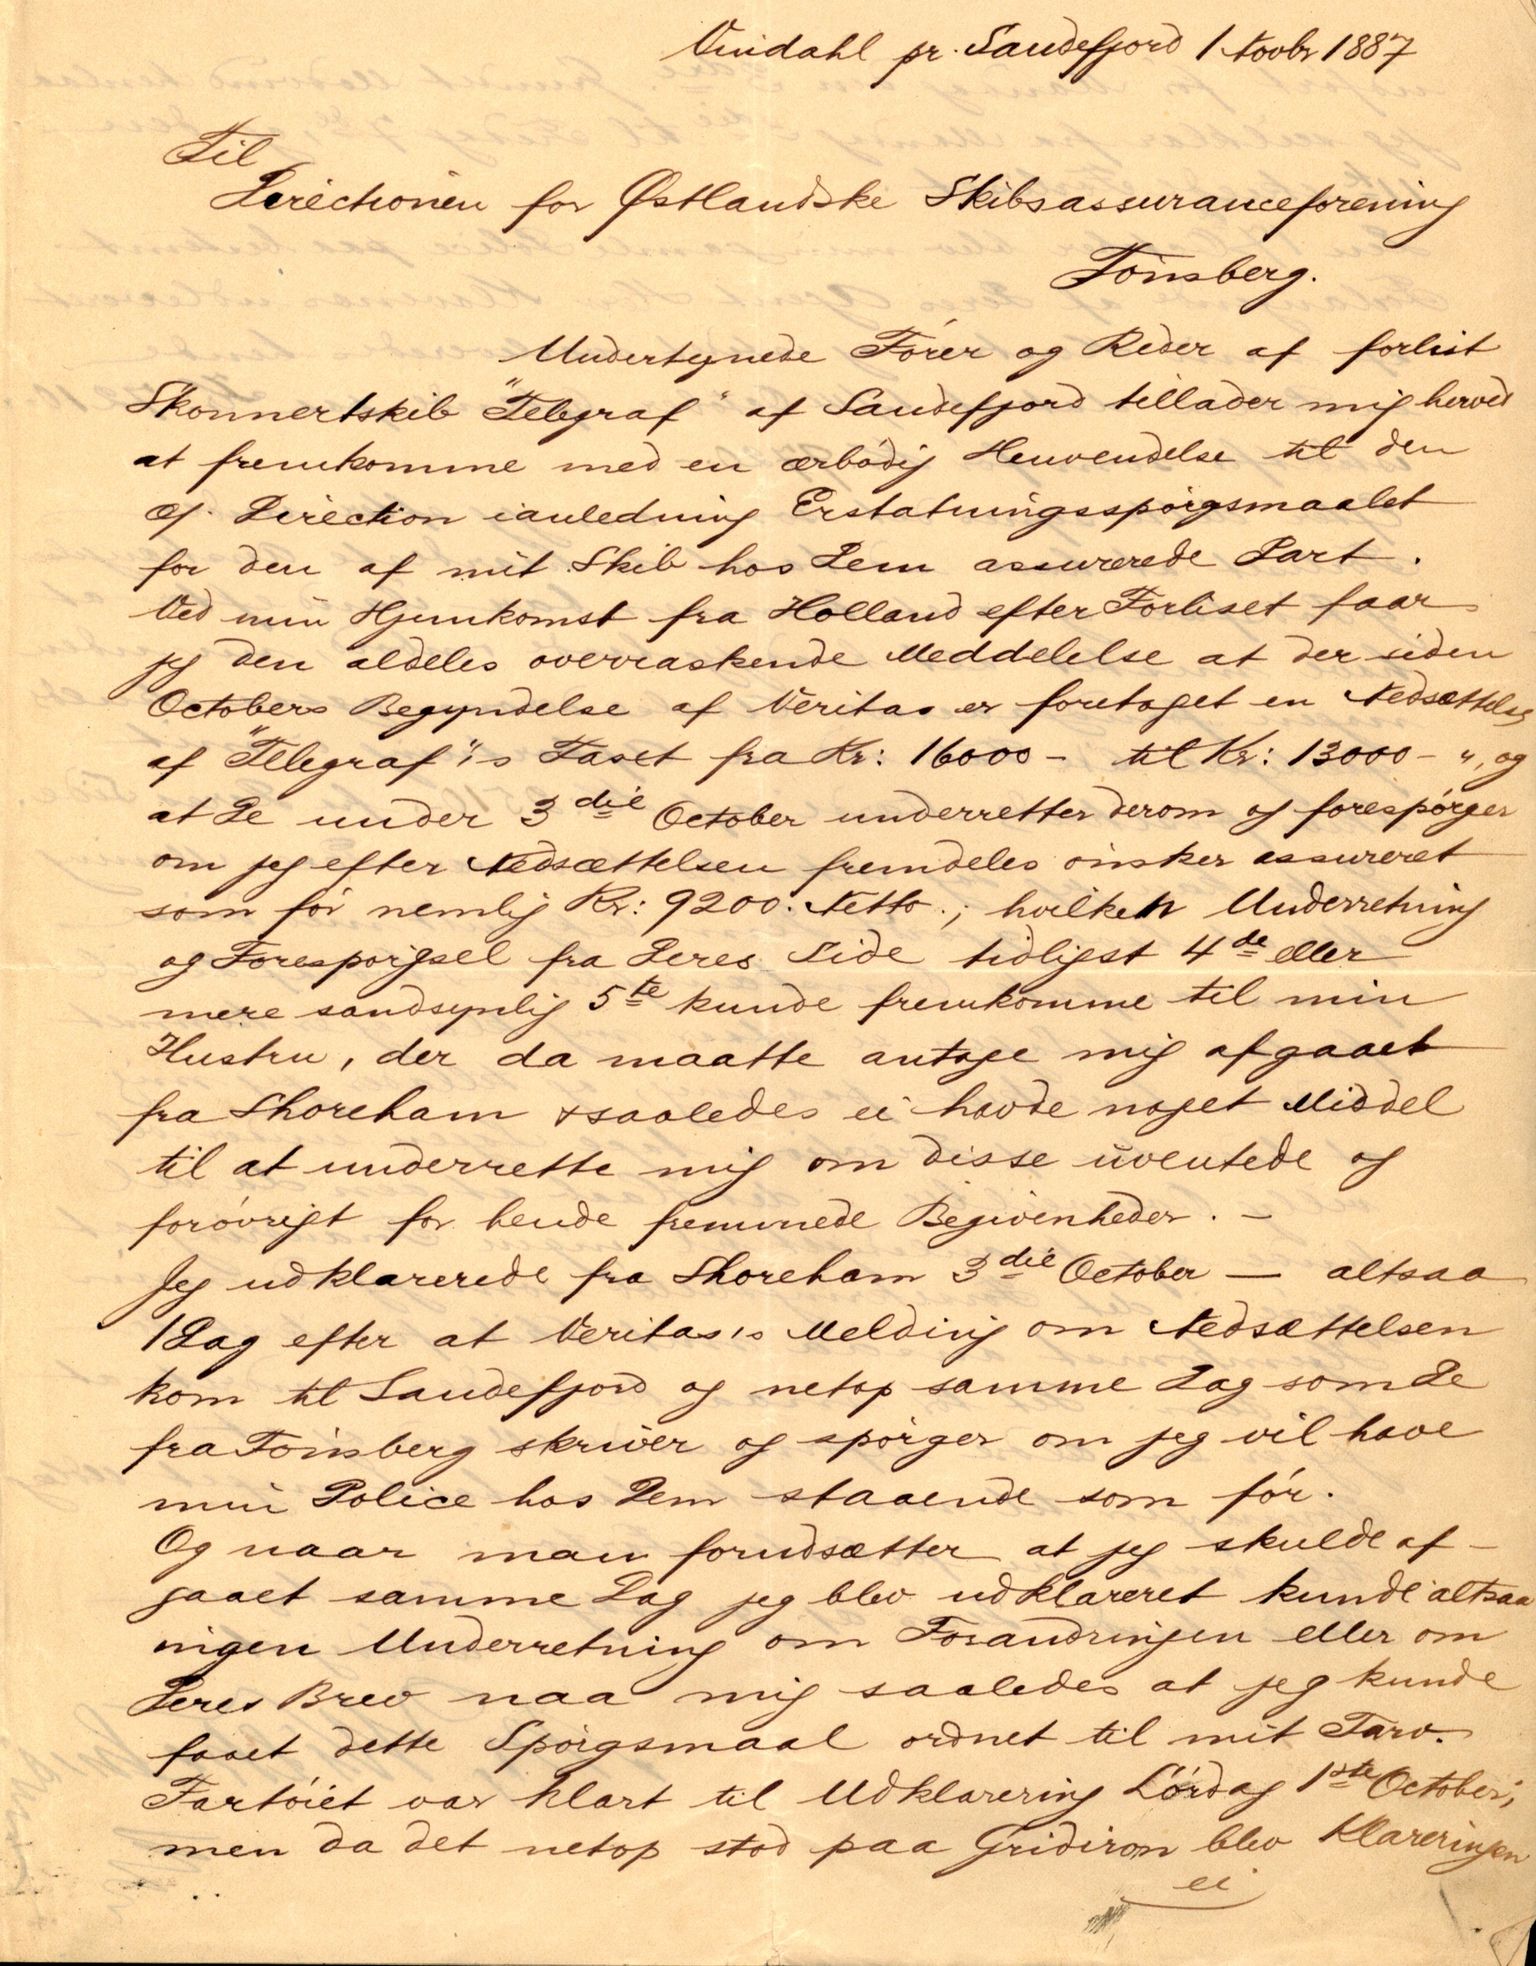 Vindahl pr. Sandefjord 1 Novbr 1887
Til
Directionen for Østlandske Skibsassuranceforening
Tönsberg.
Undertegnede Fører og Reder af forlist
Skonnertskib "Telegraf" af Sandefjord tillader mig herved
at fremkomme med en ærbødig Henvendelse til den
ær. Direction ianledning Erstatningsspörgsmaalet
for den af mit Skib hos Dem assurerede Part.
Ved min Hjemkomst fra Holland efter Forliset faar
jeg den aldeles overraskende Meddelelse at der siden
Octobers Begyndelse af Veritas er foretaget en Nedsættelse
af "Telegraf"'s Taxt fra Kr: 16000 - til Kr: 13000 - ", og
at De under 3die October underretter derom og forespørger
om jeg efter Nedsættelsen fremdeles önsker assureret
som för nemlig Kr: 9200. Netto.; hvilken Underretning
og Forespörgsel fra Deres Side tidligst 4de eller
mere sandsynlig 5te kunde fremkomme til min
Hustru, der da maatte antage mig afgaaet
fra Shoreham & saaledes ei havde noget Middel
til at underrette mig om disse uventede og
forövrigt for hende fremmede Begivenheder. -
Jeg udklarerede fra Shoreham 3die October - altsaa
1 Dag efter at Veritas's Melding om Nedsættelsen
kom til Sandefjord og netop samme Dag som De
fra Tönsberg skriver og spörger om jeg vil have
min Police hos Dem staaende som för.
Og naar man forudsætter at jeg skulde af-
gaaet samme Dag jeg blev udklareret kunde altsaa
ingen Underretning om Forandringen eller om
Deres Brev naa mig saaledes at jeg kunde
faaet dette Spörgsmaal ordnet til mit Tarv.
Fartöiet var klart til Udklarering Lördag 1ste October;
men da det netop stod paa Gridiron blev Klareringen
ei